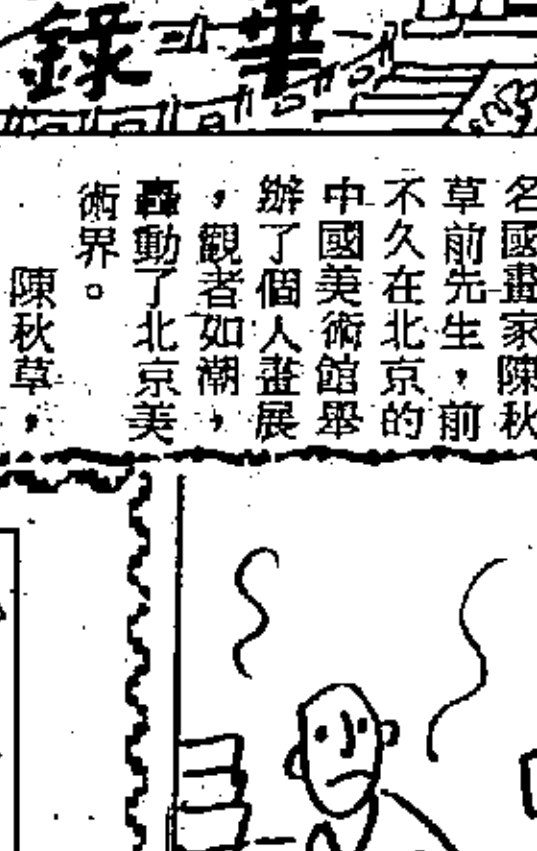 華錄
名國畫家陳秋
草前先生，前
不久在北京的
中國美術館舉
辦了個人畫展
，觀者如潮，
轟動了北京美
術界。
陳秋草，